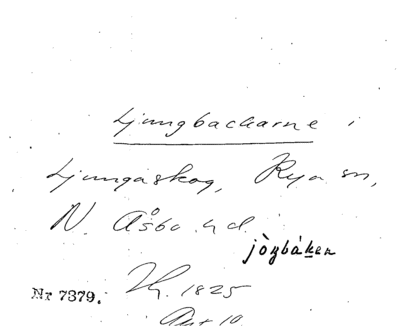 Ljungbackarne i
Ljungaskog, Rya sn,
N. Åsbo hd.
jo̍ŋbákɐn
Nr 7379. Th. 1825
Akt 10